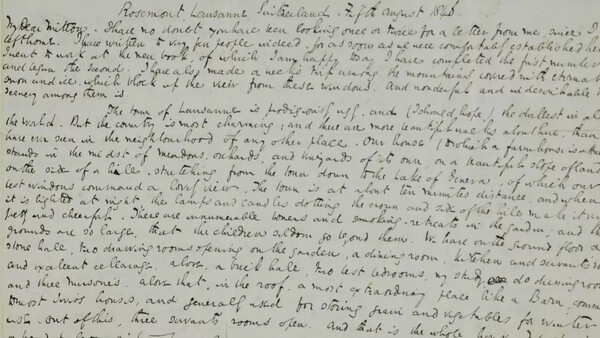 Rosemont, Lausanne, Switzerland. Fifth August 1846.
My Dear Mitton, I have no doubt you have been looking once or twice for a letter from me, since I
left home. I have written to very few people indeed, for as soon as we were comfortably established here
I went to work at the new book, of which I am happy to say I have completed the first number
and begun the second. I have also made a week's trip among the mountains covered with eternal
snow and ice, which block up the view from these windows. And wonderful and indescribable the
scenery among them is.
The town of Lausanne is prodigiously ugly, and (I should hope) the dullest in all
the World. But the country is most charming; and there are more beautiful walks about here, than I
have ever seen in the neighbourhood of any other place. Our house
stands in the midst of meadows, orchards, and vineyards of its own, on a beautiful slope of land
on the side of a hill, stretching from the town down to the Lake of Geneva, of which our
best windows command a lovely view. The town is at about ten minutes distance, and when
it is lighted at night, the lamps and candles dotting the crown and side of the hill make it very
pretty and cheerful. There are innumerable bowers and smoking-retreats in the garden; and the
grounds are so large, that the children seldom go beyond them. We have on the ground floor a
stone hall, two drawing rooms opening on the garden, a dining room, kitchen and servants
and excellent cellarage. above, a brick hall, two best bedrooms, my study, do dressing room
and three nurseries. above that, in the roof, a most extraordinary place like a Barn, common
to most Swiss houses, and generally used for storing grain and vegetables for winter
use. Out of this, three servants rooms open. And that is the whole